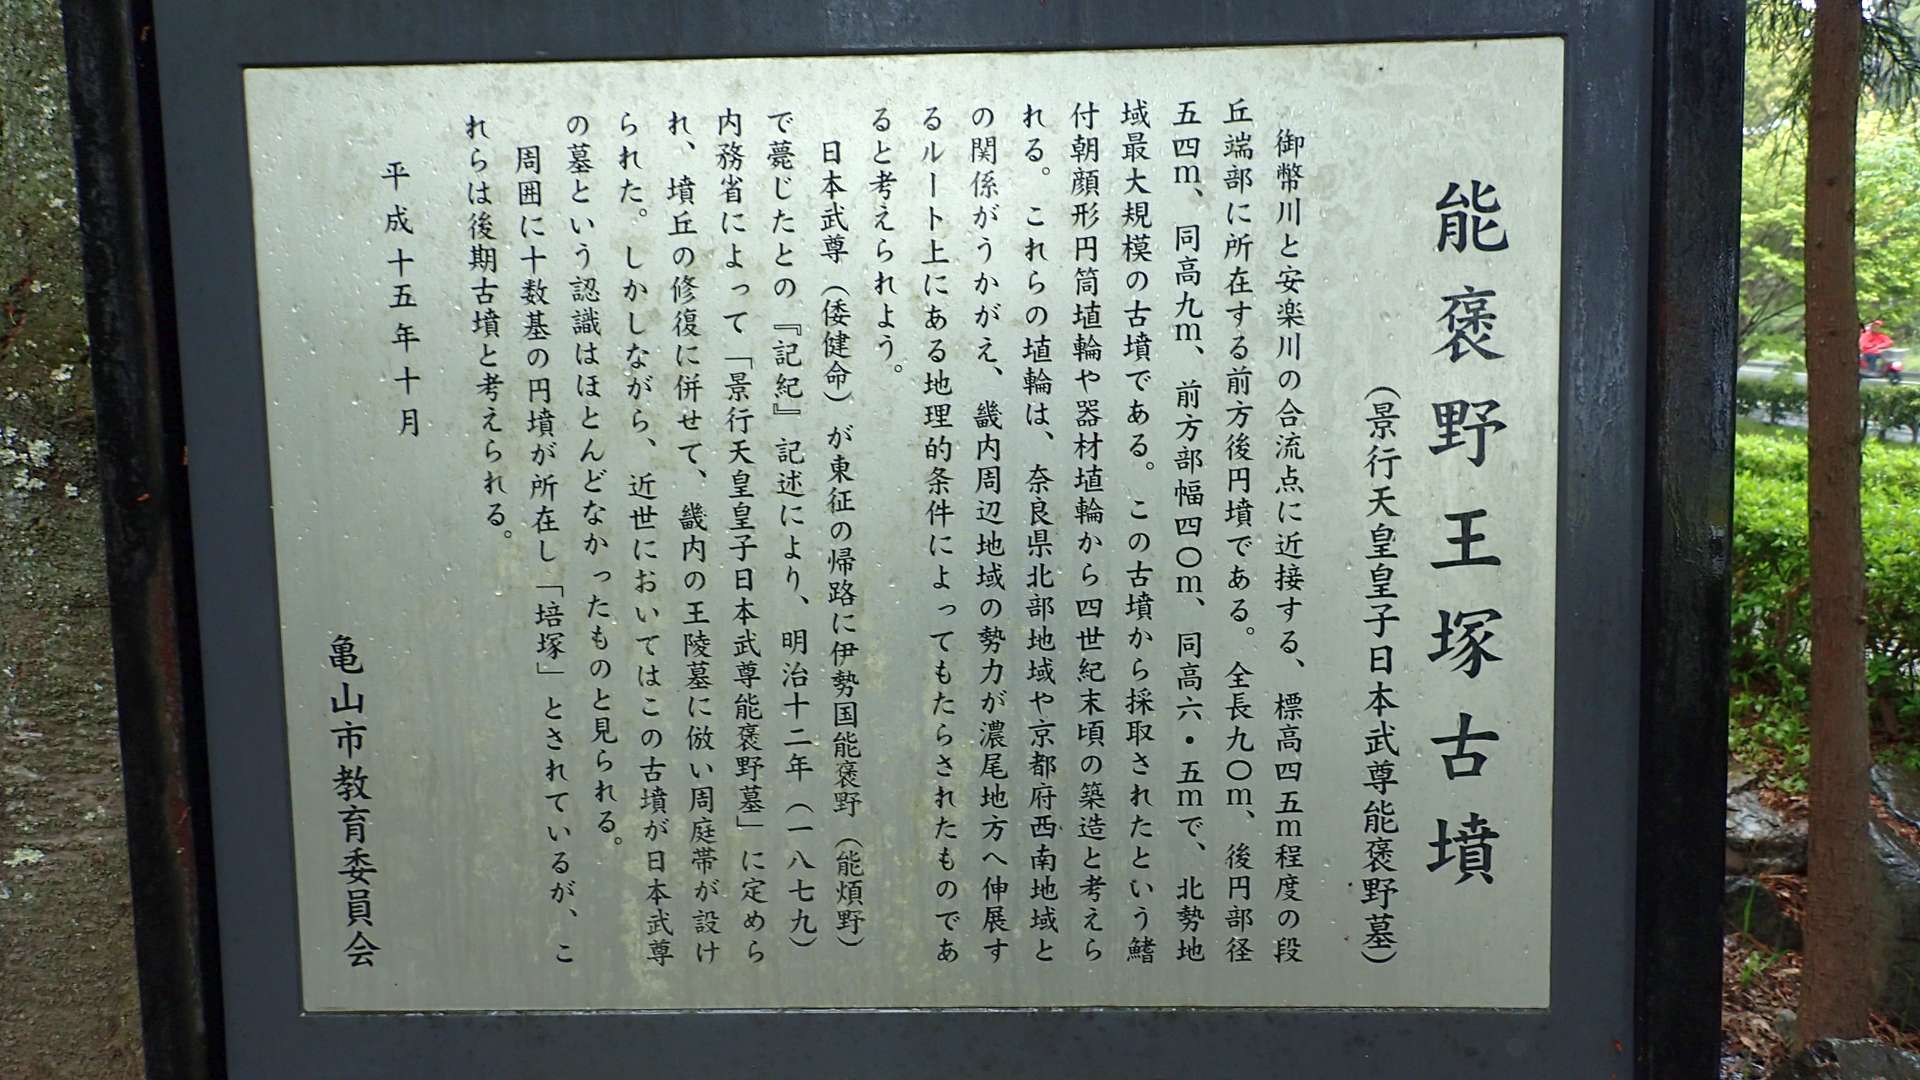 能褒野王塚古墳
（景行天皇皇子日本武尊能褒野墓）
御幣川と安楽川の合流点に近接する、標高四五ｍ程度の段
丘端部に所在する前方後円墳である。全長九〇ｍ、後円部径
五四ｍ、同高九ｍ、前方部幅四〇ｍ、同高六・五ｍで、北勢地
域最大規模の古墳である。この古墳から採取されたという鰭
付朝顔形円筒埴輪や器材埴輪から四世紀末頃の築造と考えら
れる。これらの埴輪は、奈良県北部地域や京都府西南地域と
の関係がうかがえ、畿内周辺地域の勢力が濃尾地方へ伸展す
るルート上にある地理的条件によってもたらされたものであ
ると考えられよう。
日本武尊（倭健命）が東征の帰路に伊勢国能褒野（能煩野）
で薨じたとの『記紀』記述により、明治十二年（一八七九）
内務省によって「景行天皇皇子日本武尊能褒野墓」に定めら
れ、墳丘の修復に併せて、畿内の王陵墓に倣い周庭帯が設け
られた。しかしながら、近世においてはこの古墳が日本武尊
の墓という認識はほとんどなかったものと見られる。
周囲に十数基の円墳が所在し「培塚」とされているが、こ
れらは後期古墳と考えられる。
平成十五年十月
亀山市教育委員会